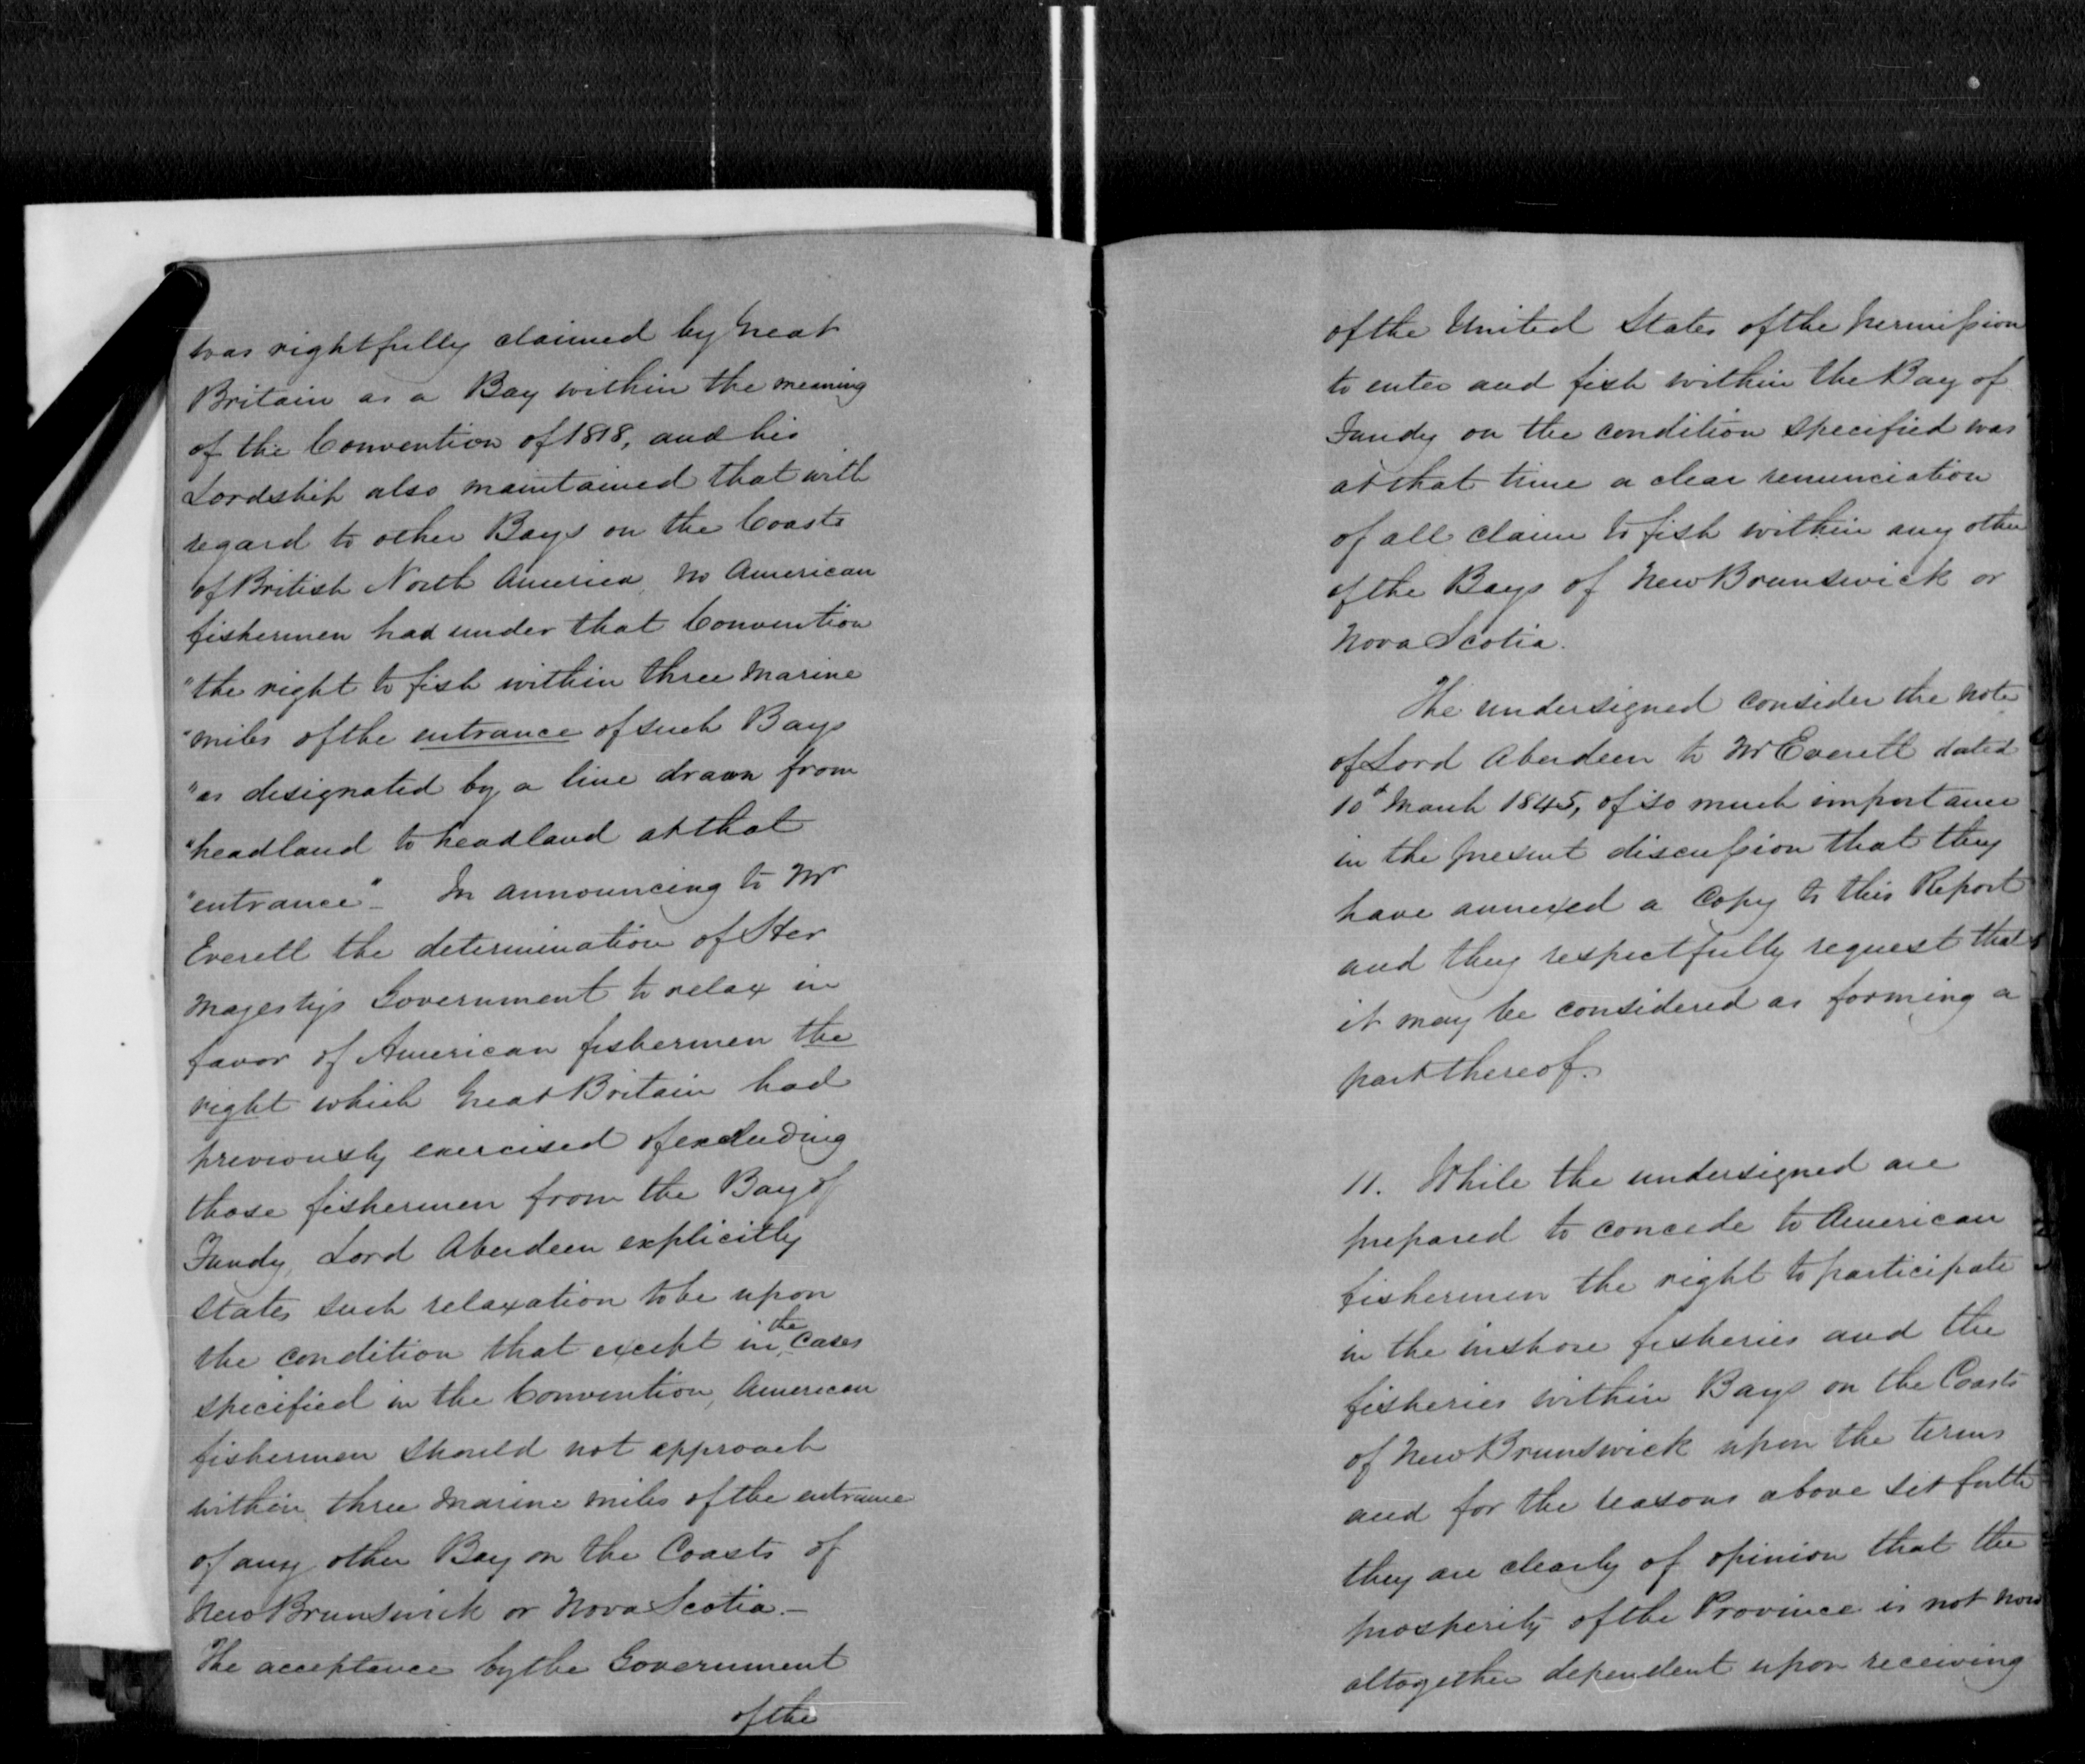 was rightfully claimed by Great
Britain as a Bay within the meaning
of the Convention of 1818, and his
Lordship also maintained that with
regard to other Bays on the Coasts
of British North America, no American
fishermen had under that Convention
"the right to fish within three marine
"miles of the entrance of such Bays
"as designated by a line drawn from
"headland to headland at that
"entrance" – In announcing to Mr
Everett the determination of Her
Majesty's Government to relax in
favor of American fishermen the
right which Great Britain had
previously exercised of excluding
those fishermen from the Bay of
Fundy, Lord Aberdeen explicitly
states such relaxation to be upon
the condition that except in the cases
specified in the Convention, American
fishermen should not approach
within three marine miles of the entrance
of any other Bay on the Coasts of
New Brunswick or Nova Scotia. –
The acceptance by the Government
of the
of the United States of the permission
to enter and fish within the Bay of
Fundy on the condition specified was
at that time a clear renunciation
of all claim to fish within any other
of the Bays of New Brunswick or
Nova Scotia.
The undersigned consider the note
of Lord Aberdeen to Mr Everett dated
10th March 1845, of so much importance
in the present discussion that they
have annexed a Copy to this Report
and they respectfully request that
it may be considered as forming a
part thereof.
11. While the undersigned are
prepared to concede to American
fishermen the right to participate
in the inshore fisheries and the
fisheries within Bays on the Coasts
of New Brunswick upon the terms
and for the reasons above set forth
they are clearly of opinion that the
prosperity of the Province is not now
altogether dependent upon receiving